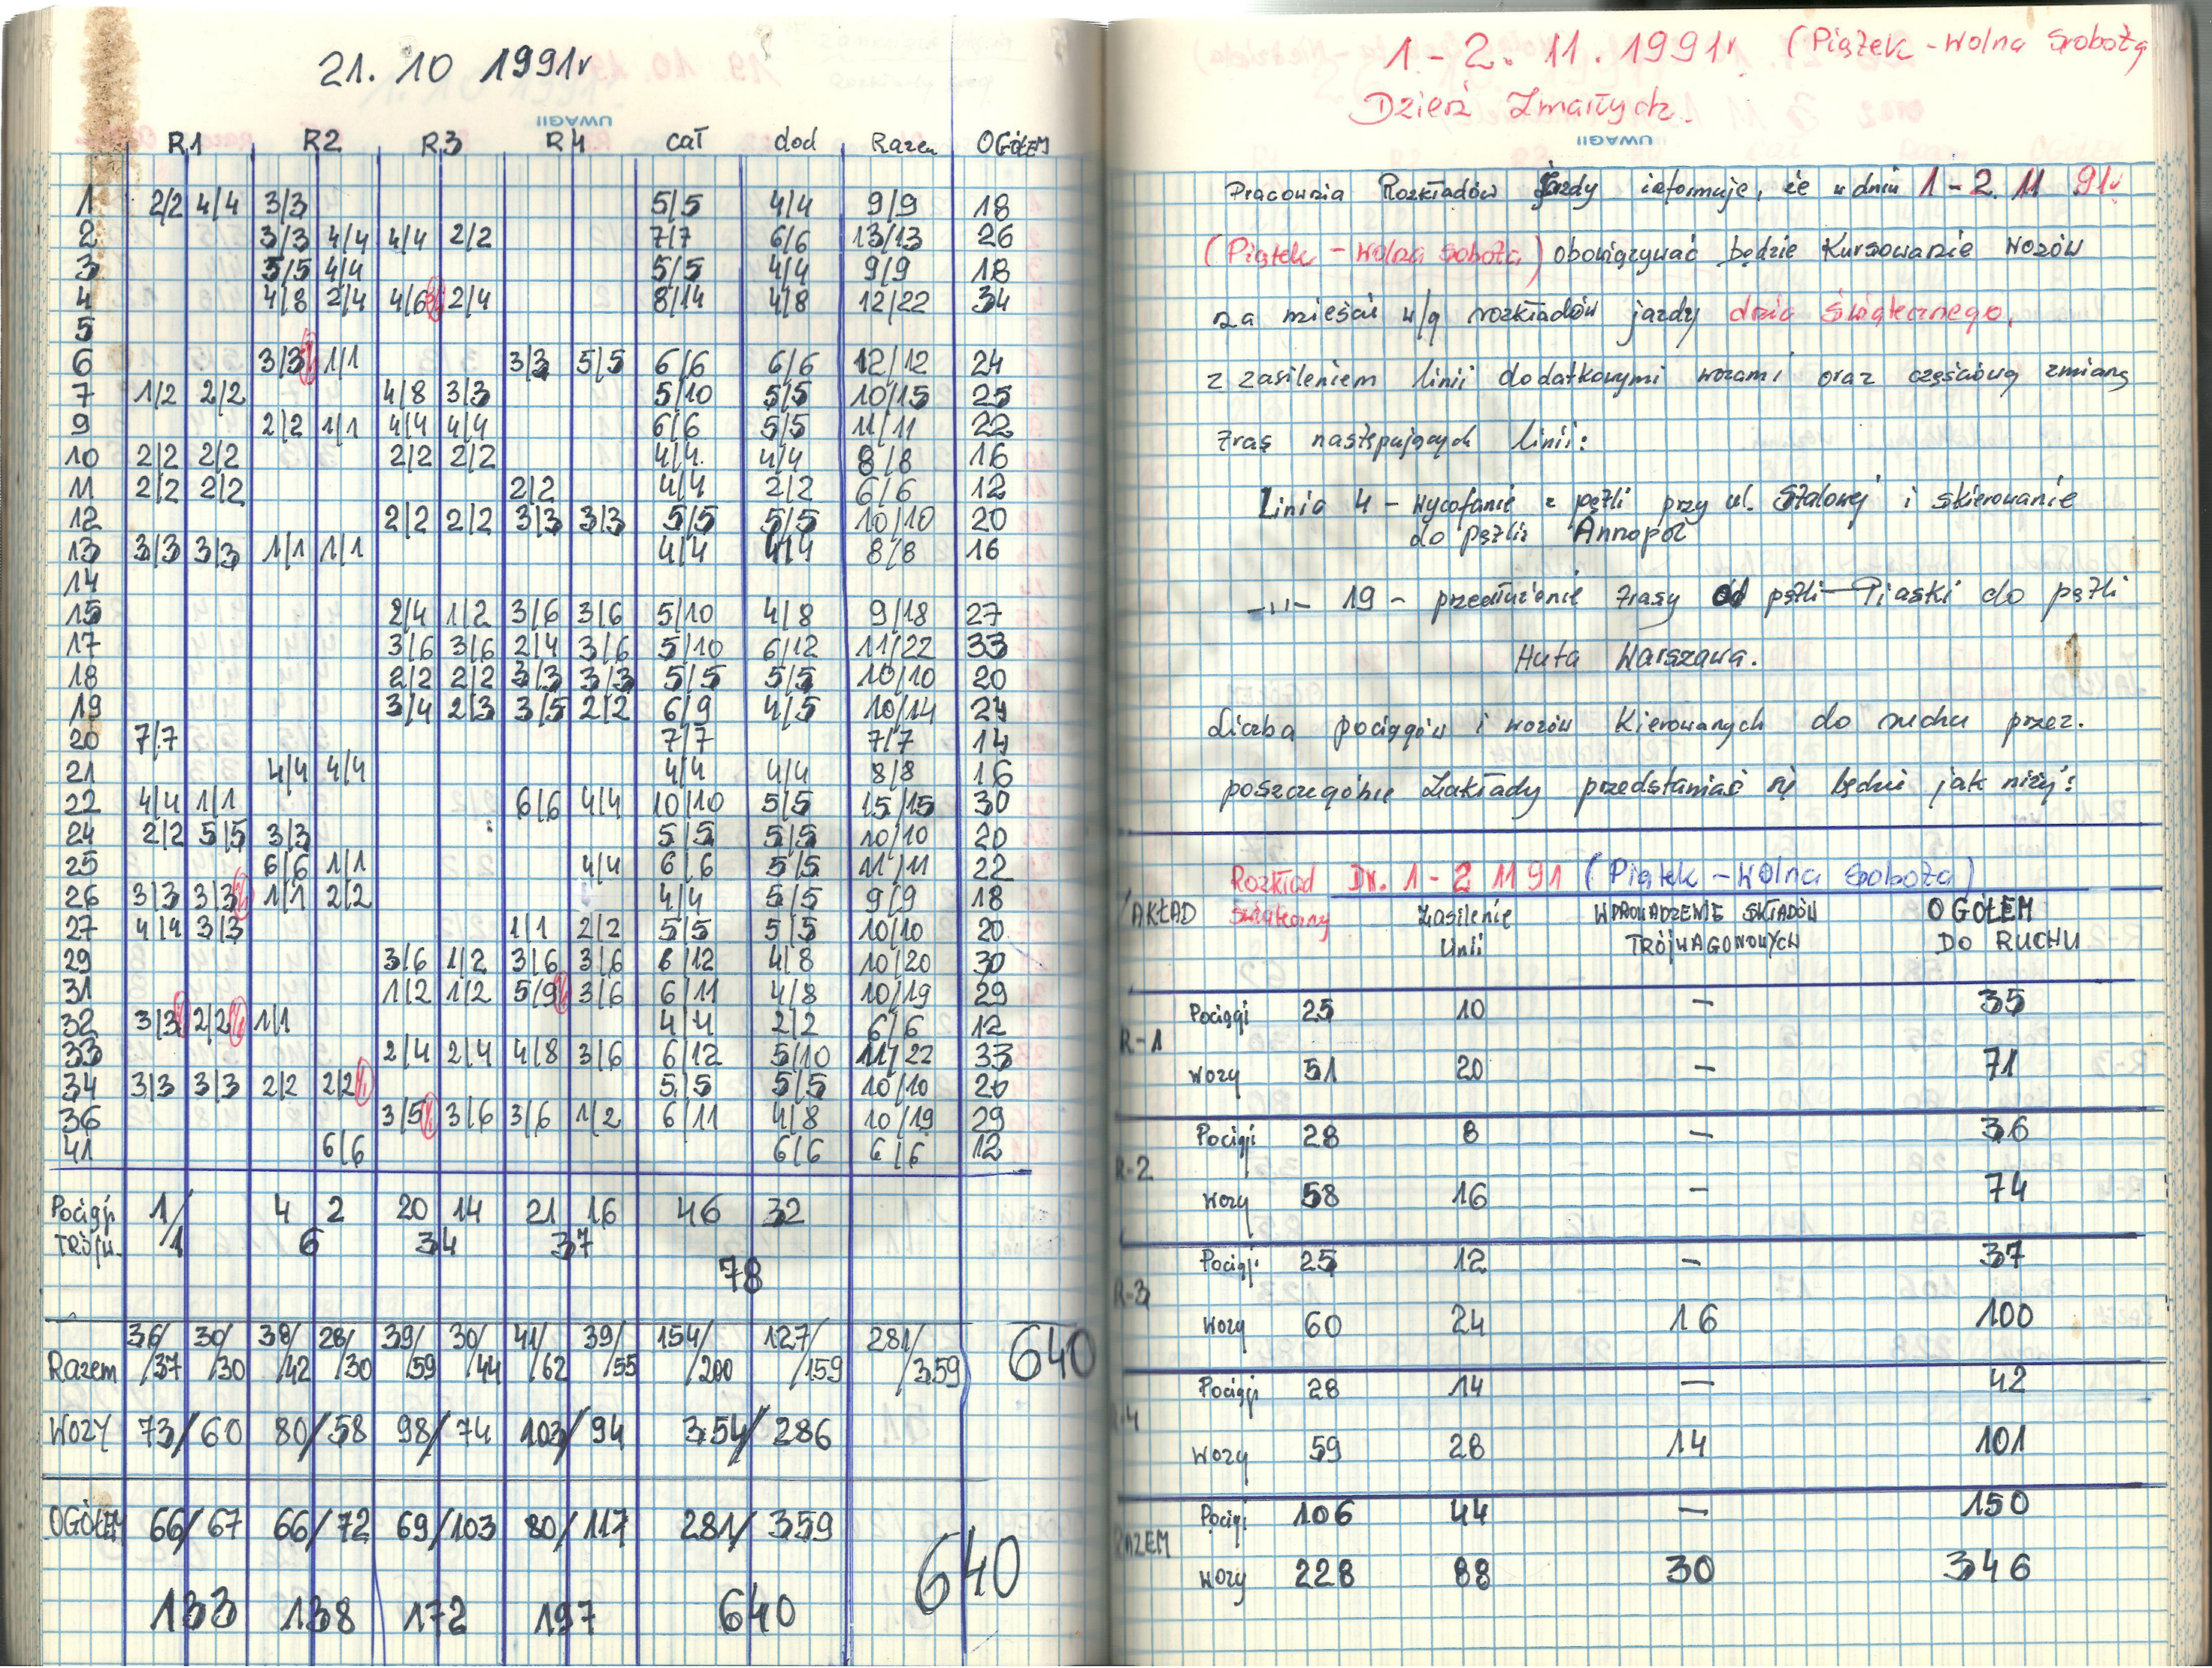 21. 10 1991r
UWAGI!
R1 R2 R3 R4 cał dod Razem OGÓŁEM
1 2/2 4/4 3/3 5/5 4/4 9/9 18
2 3/3 4/4 4/4 2/2 7/7 6/6 13/13 26
3 5/5 4/4 5/5 4/4 9/9 18
4 4/8 2/4 4/6 2/4 8/14 4/8 12/22 34
5
6 3/3 1/1 3/3 5/5 6/6 6/6 12/12 24
7 1/2 2/2 4/8 3/3 5/10 5/5 10/15 25
9 2/2 1/1 4/4 4/4 6/6 5/5 11/11 22
10 2/2 2/2 2/2 2/2 4/4. 4/4 8/8 16
11 2/2 2/2 2/2 4/4 2/2 6/6 12
12 2/2 2/2 3/3 3/3 5/5 5/5 10/10 20
13 3/3 3/3 1/1 1/1 4/4 4/4 8/8 16
14
15 2/4 1/2 3/6 3/6 5/10 4/8 9/18 27
17 3/6 3/6 2/4 3/6 5/10 6/12 11/22 33
18 2/2 2/2 3/3 3/3 5/5 5/5 10/10 20
19 3/4 2/3 3/5 2/2 6/9 4/5 10/14 24
20 7/7 7/7 7/7 14
21 4/4 4/4 4/4 4/4 8/8 16
22 4/4 1/1 6/6 4/4 10/10 5/5 15/15 30
24 2/2 5/5 3/3 5/5 5/5 10/10 20
25 6/6 1/1 4/4 6/6 5/5 11/11 22
26 3/3 3/3 1/1 2/2 4/4 5/5 9/9 18
27 4/4 3/3 1/1 2/2 5/5 5/5 10/10 20
29 3/6 1/2 3/6 3/6 6/12 4/8 10/20 30
31 1/2 1/2 5/9 3/6 6/11 4/8 10/19 29
32 3/3 2/2 1/1 4/4 2/2 6/6 12
33 2/4 2/4 4/8 3/6 6/12 5/10 11/22 33
34 3/3 3/3 2/2 2/2 5/5 5/5 10/10 20
36 3/5 3/6 3/6 1/2 6/11 4/8 10/19 29
41 6/6 6/6 6/6 12
Pociągi 1/ 4 2 20 14 21 16 46 32
TRÓJW. /1 6 34 37
78
36/ 30/ 38/ 28/ 39/ 30/ 41/ 39/ 154/ 127/ 281/ 640
Razem /37 /30 /42 /30 /59 /44 /62 /55 /200 /159 /359
WOZY 73/60 80/58 98/74 103/94 354/286
OGÓŁEM 66/67 66/72 69/103 80/117 281/359
640
133 138 172 197 640
1 - 2. 11. 1991r (Piątek - Wolna Sobota
Dzień Zmarłych.
UWAGI!
Pracownia Rozkładów Jazdy informuje, że w dniu 1 - 2. 11 91r
(Piątek - Wolna Sobota) obowiązywać będzie Kursowanie wozów
na mieście w/g rozkładów jazdy dnia świątecznego,
z zasileniem linii dodatkowymi wozami oraz częściową zmianą
tras następujących linii:
Linia 4 - wycofanie z pętli przy ul. Stalowej i skierowanie
do pętli Annopol
-"- 19 - przedłużenie trasy od pętli Piaski do pętli
Huta Warszawa.
Liczba pociągów i wozów Kierowanych do ruchu przez.
poszczególne Zakłady przedstawiać się będzie jak niżej:
Rozkład Dn. 1 - 2 11 91 (Piątek - Wolna Sobota)
ZAKŁAD świąteczny Zasilenie WPROWADZENIE SKŁADÓW OGÓŁEM
Linii TRÓJWAGONOWYCH DO RUCHU
Pociągi 25 10 - 35
R-1
Wozy 51 20 - 71
Pociągi 28 8 - 36
R-2
Wozy 58 16 - 74
Pociągi 25 12 - 37
R-3
Wozy 60 24 16 100
Pociągi 28 14 - 42
R-4
Wozy 59 28 14 101
Pociągi 106 44 - 150
RAZEM
Wozy 228 88 30 346